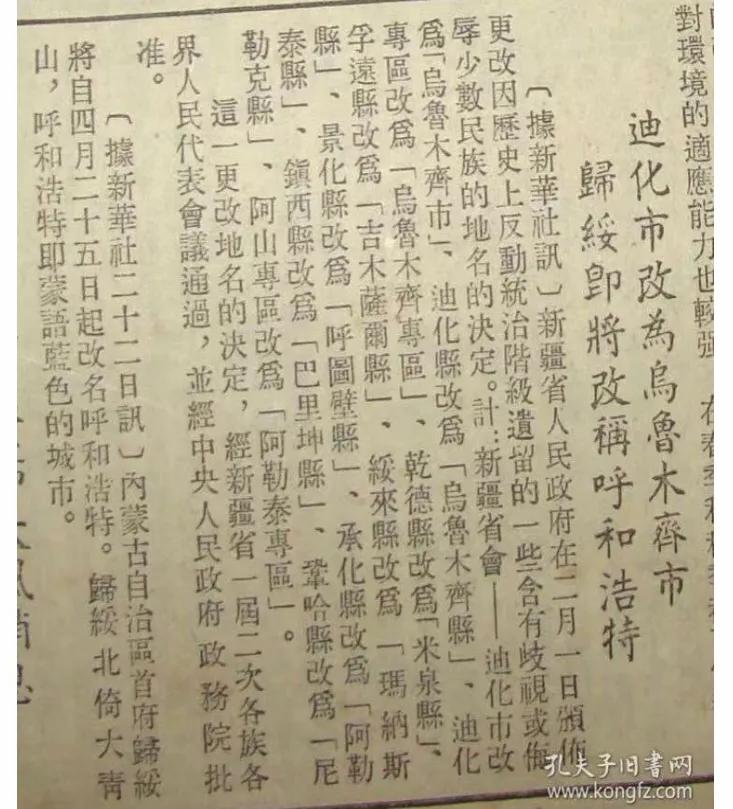 對環境的適應能力也較强
迪化市改為烏魯木齊市
歸綏即將改稱呼和浩特
〔據新華社訊〕新疆省人民政府在二月一日頒佈
更改因歷史上反動統治階級遺留的一些含有歧視或侮
辱少數民族的地名的決定。計：新疆省會——迪化市改
爲「烏魯木齊市」、迪化縣改爲「烏魯木齊縣」、迪化
專區改爲「烏魯木齊專區」、乾德縣改爲「米泉縣」、
孚遠縣改爲「吉木薩爾縣」、綏來縣改爲「瑪納斯
縣」、景化縣改爲「呼圖壁縣」、承化縣改爲「阿勒
泰縣」、鎮西縣改爲「巴里坤縣」、鞏哈縣改爲「尼
勒克縣」、阿山專區改爲「阿勒泰專區」。
這一更改地名的決定，經新疆省一屆二次各族各
界人民代表會議通過，並經中央人民政府政務院批
准。
〔據新華社二十二日訊〕內蒙古自治區首府歸綏
將自四月二十五日起改名呼和浩特。歸綏北倚大青
山，呼和浩特即蒙語藍色的城市。
孔夫子旧書网
www.kongfz.com